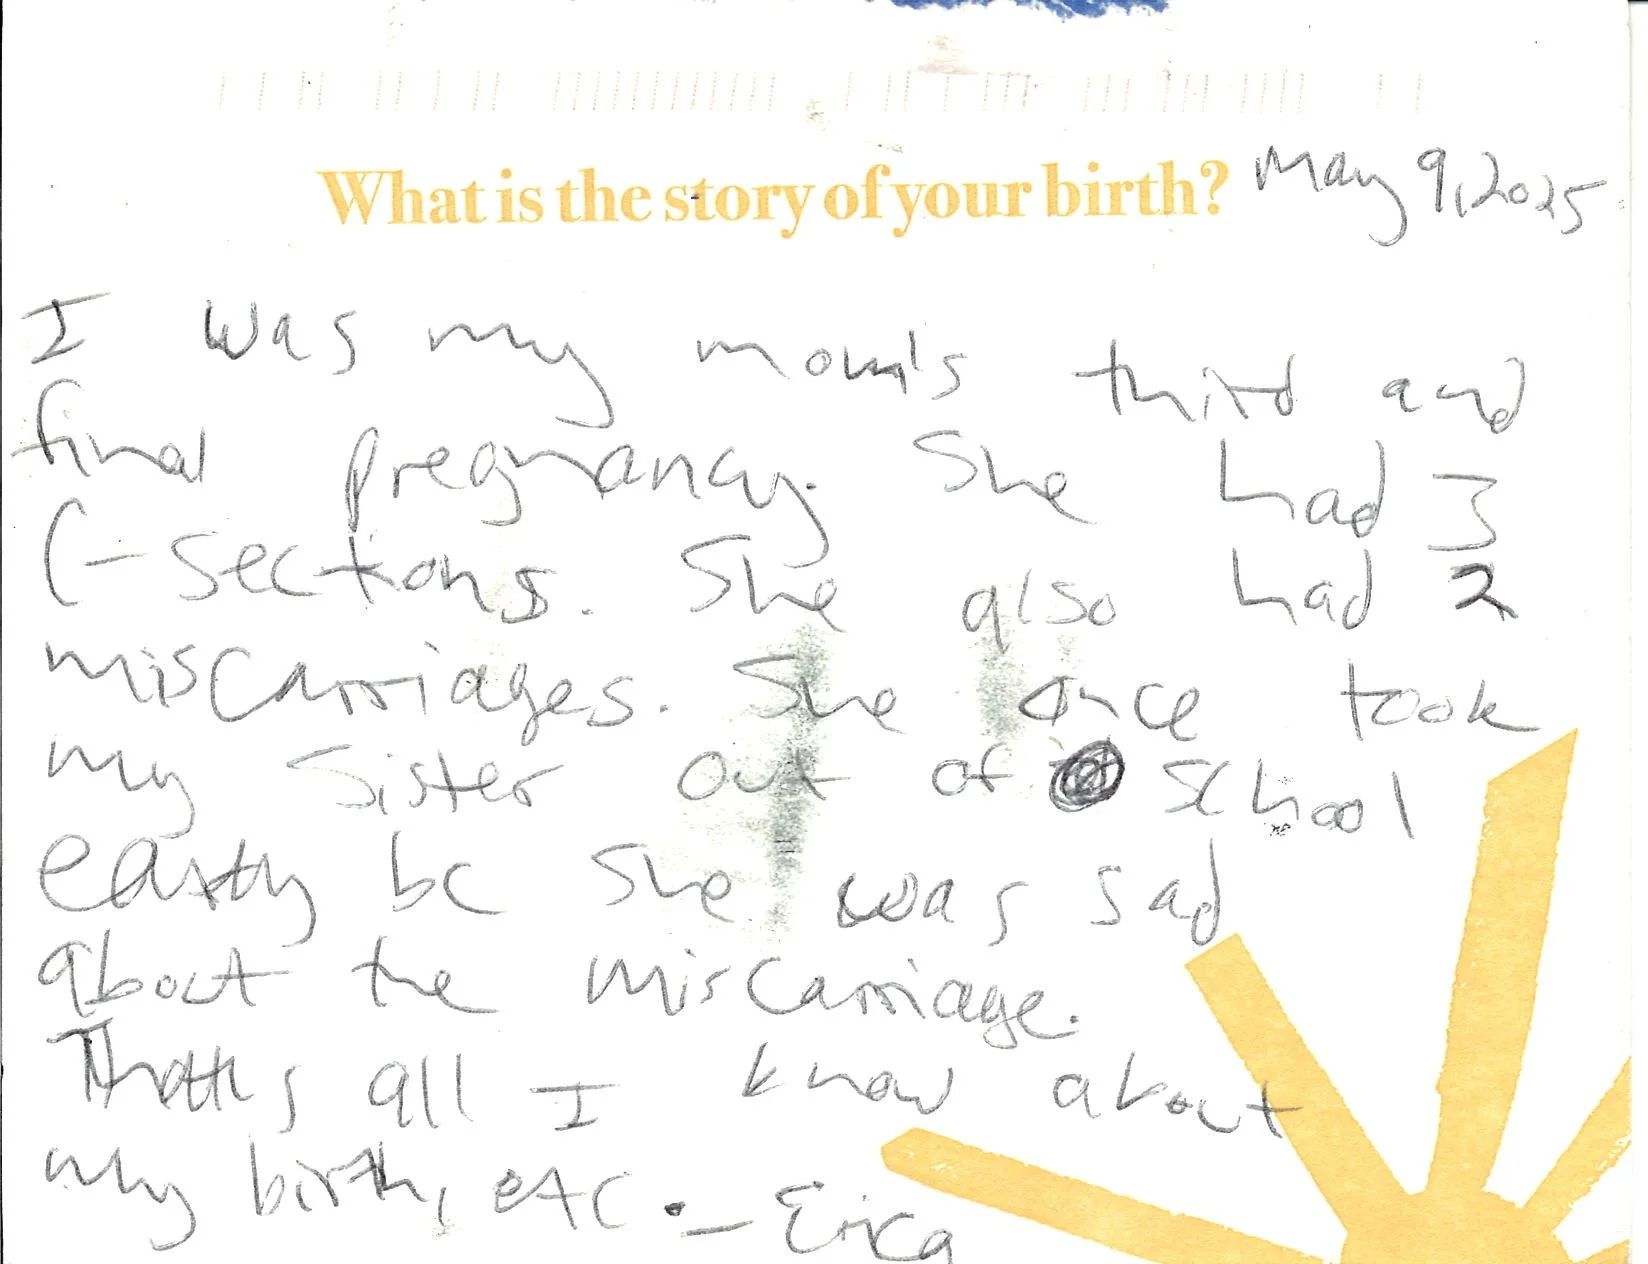 What is the story of your birth? May 9, 2025
I was my mom's third and
final pregnancy. She had 3
C-sections. She also had 2
miscarriages. She once took
my sister out of school
early bc she was sad
about the miscarriage.
That's all I know about
my birth, etc. - Erica